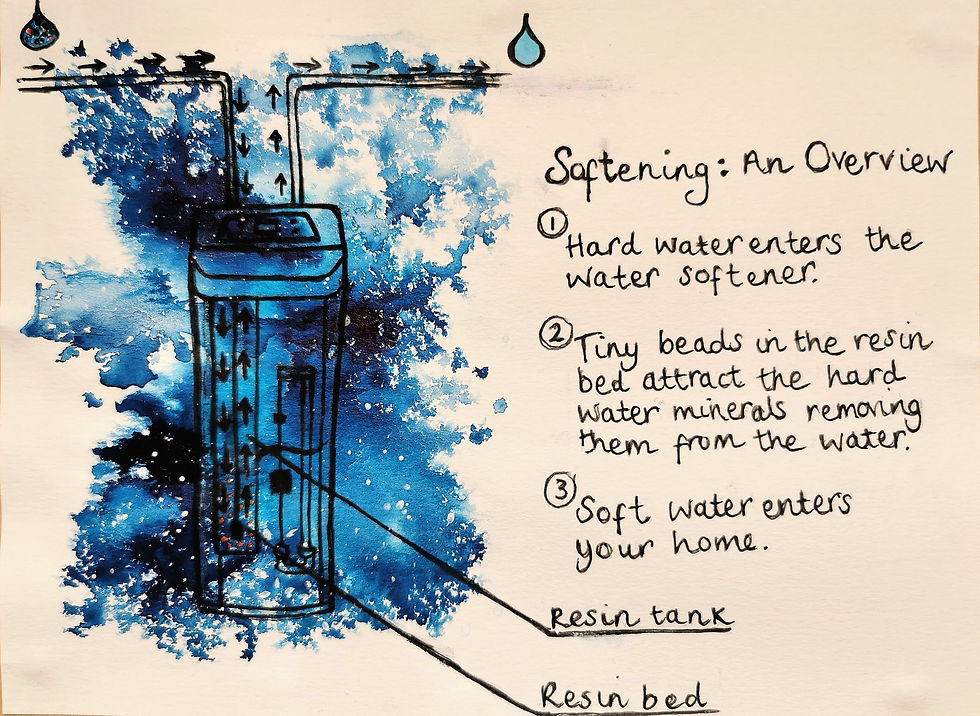 Softening: An Overview
① Hard water enters the
water softener.
② Tiny beads in the resin
bed attract the hard
water minerals removing
them from the water.
③ Soft water enters
your home.
Resin tank
Resin bed